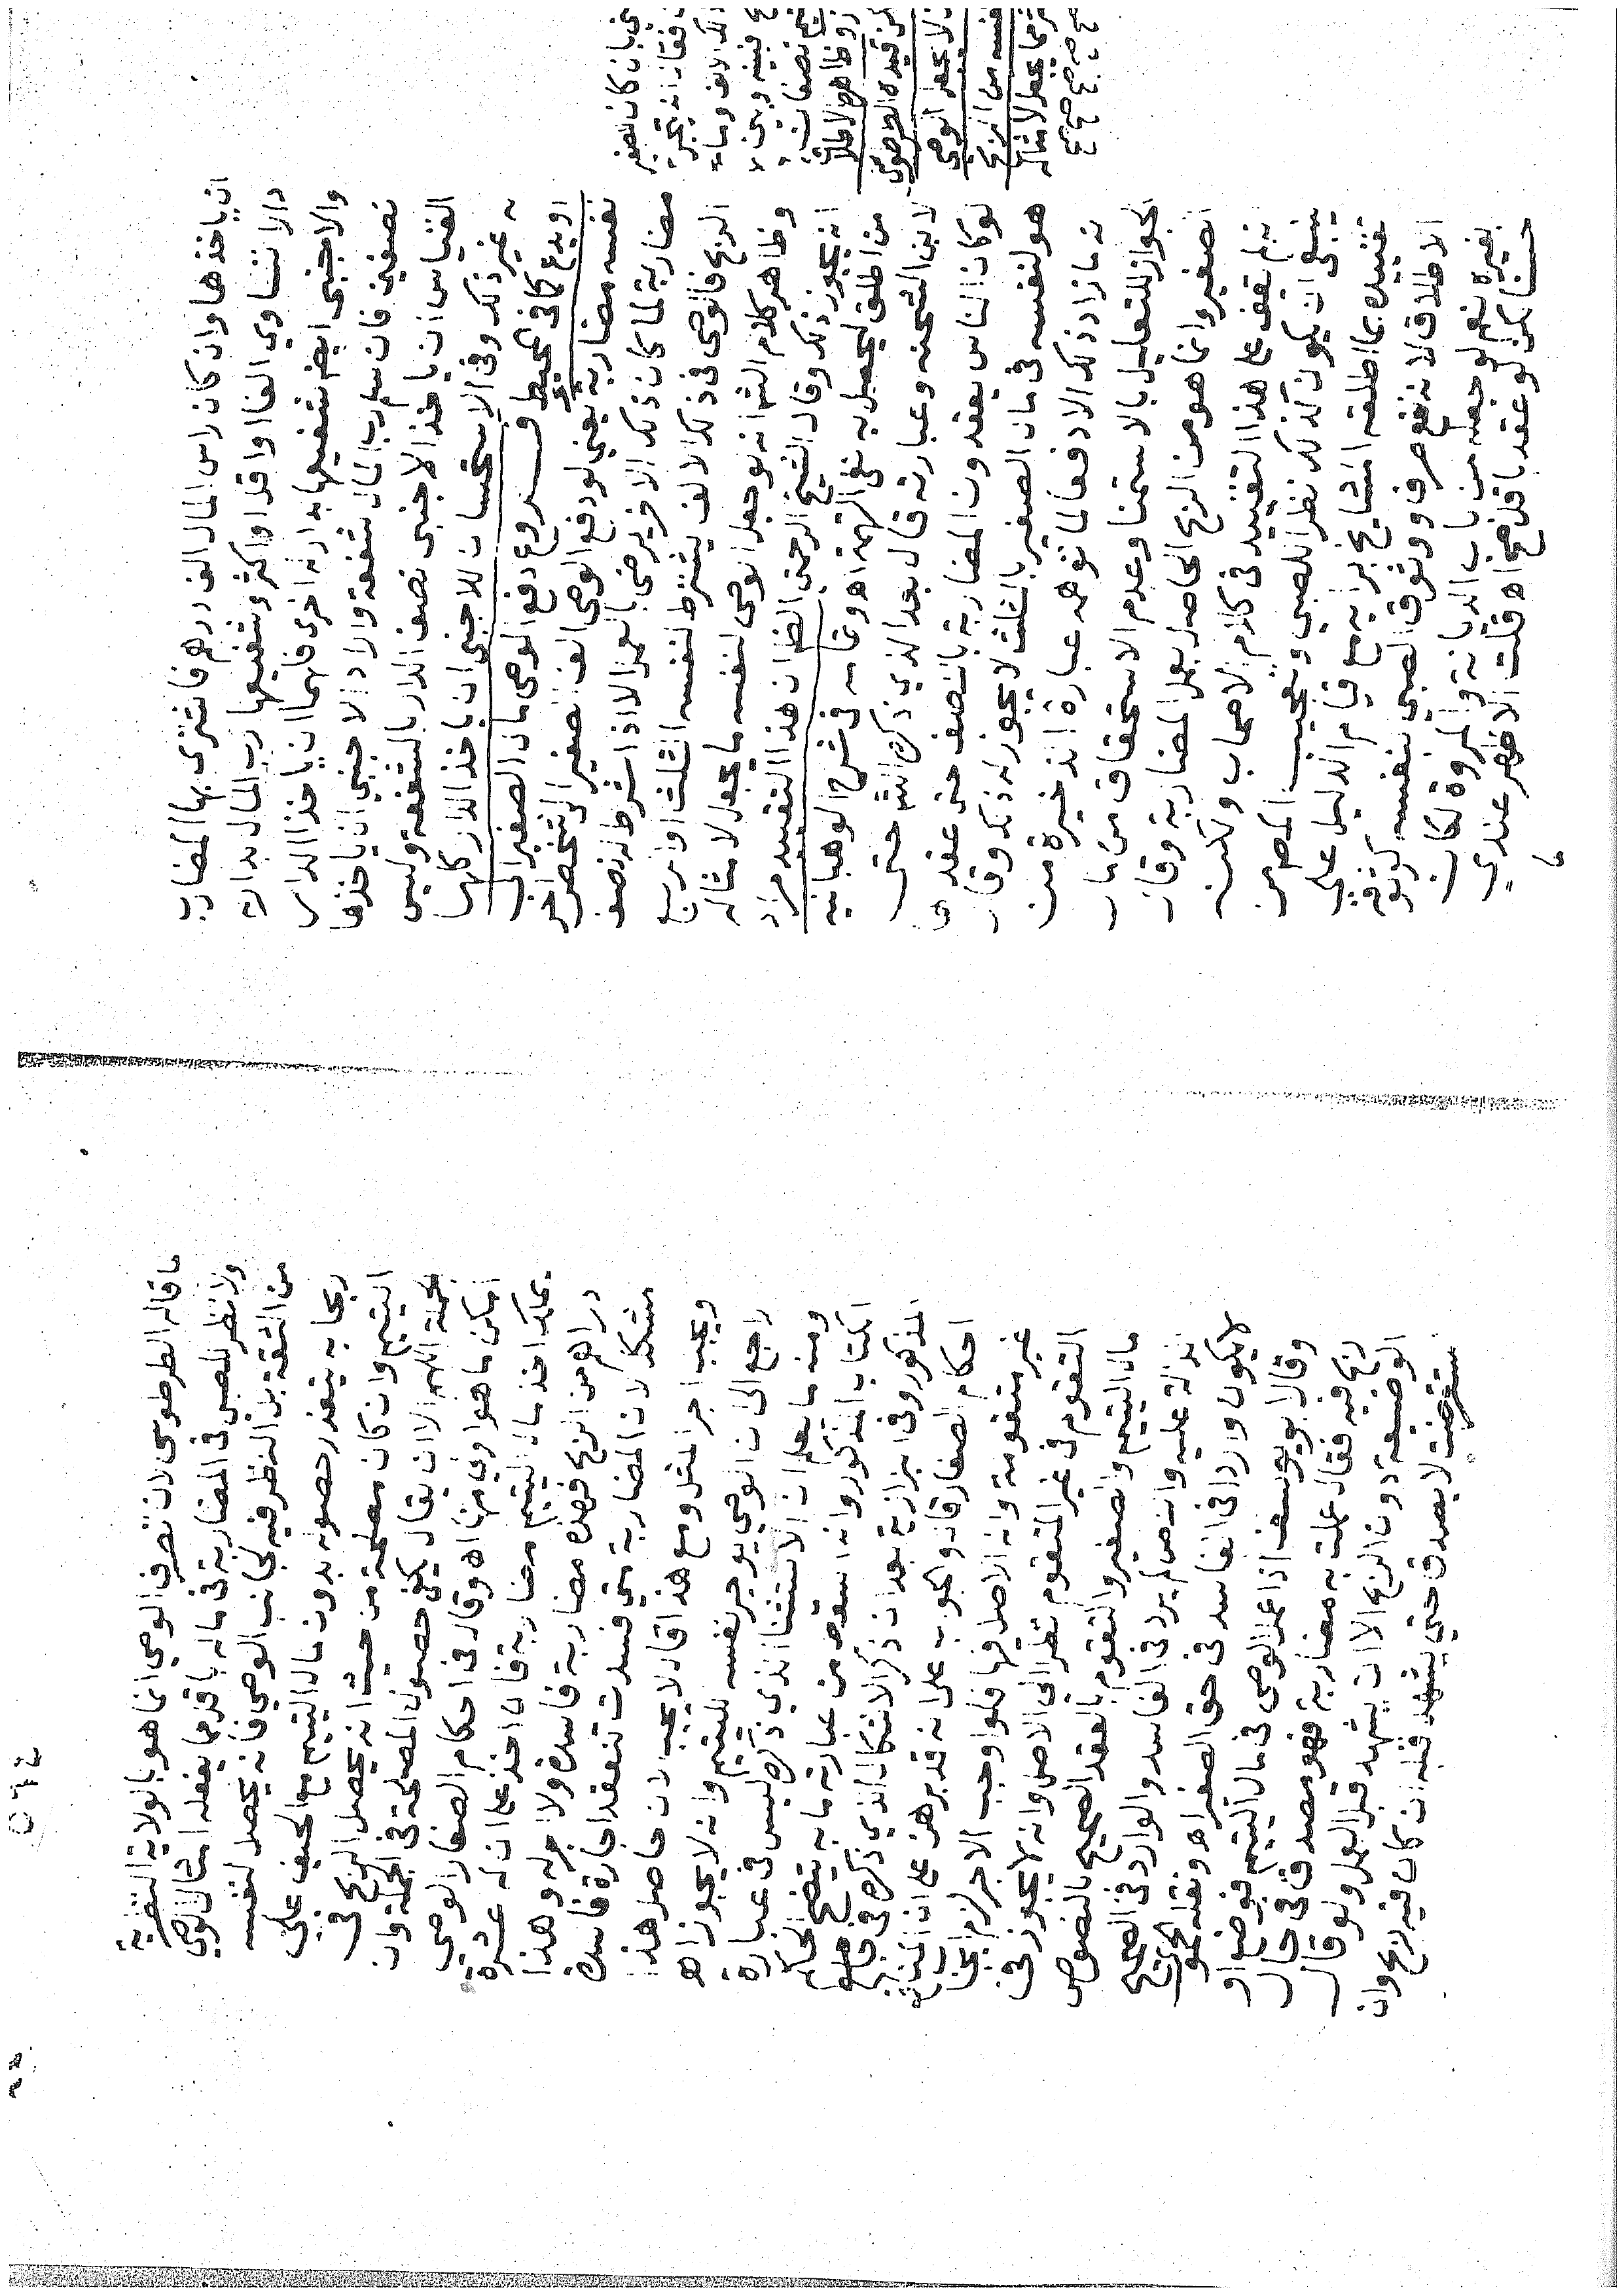 ان ياخذها وان كان راس المال الف درهم فاشترى بها المضارب
دارا تساوي الفا او اقل او اكثر وشفيعها رب المال بدار له
والاجنبي ايضا شفيعها بدار له اخرى فلهما ان ياخذا الدار
نصفين فان سلم رب المال شفعة واراد الاجنبي ان ياخذها
القياس ان ياخذ الاجنبي نصف الدار بالشفعة وليس
له غير ذلك وفي الاستحسان للاجنبي ان ياخذ الدار كلها
او يدع كما في المحيط فروع دفع الوصي مال الصغير الى
نفسه مضاربة يعني لو دفع الوصي الف الصغير الى شخص اخر
مضاربة لما كان ذلك الاخر يرضى بالعمل الا اذا شرط له نصف
الربح فالوصي في ذلك الالف يشترط لنفسه الثلث او الربع
وظاهر كلام الشم انه لو جعل الوصي لنفسه ما يجعل لامثاله
انه يجوز ذلك وقال الشيخ الرحمتي الظ ان هذا التقييد مراد
من اطلق ليحصل به نفي التهمة اه وتمامه في شرح الوهبانية
لابن الشحنه وعبارته قال بعد الذي ذكره الشم حتى
لو كان الناس يعقدون المضاربة بالنصف حتى عقد ى
هو لنفسه في مال الصغير بالثلث لا يجوز له ذلك وقال
نه ما زاد ذلك الا دفعا لما توهمه عبارة الذخيرة من
الجواز للتعليل بالاستمنا وعدم الاستحقاق من مال
الصغير وانما هو من الربح الحاصل بعمل المضاربة وقال
نه لم يقف على هذا التقييد في كلام الاصحاب ولكنه
ينبغي ان يكون كذلك نظرا للصبي وتعجب المص من
تقييده بما اطلقه المشايخ برايه مع قيام الدليل على
الاطلاق لانه نفع صرف ووثوق الصبي بنفسه كوثوقه
بغيره نعم لو جعله من باب الديانة والمروة لكان
حسنا لكن لو عقد باقل صح اه قلت الاظهر عندي
ما قاله الطرطوسي لان تصرف الوصي انما هو بالولاية النظرية
ولا نظر للصبي في المضاربة في ماله باقل مما يفعله امثال الوصي
من الثقة بل النظر فيه لجانب الوصي فانه يحصل لنفسه
ربحا به يتعذر حصوله بدون مال اليتيم مع الحيف على
اليتيم وان كان مصلحة من حيث انه يحصل الربح في
الجملة اللهم الا ان يقال يكفي حصول المصلحة في الجملة وان
امكن ما هو اوفى منها اه وقال في احكام الصغار الوصي
يملك اخذ مال اليتيم مضاربة فان اخذ على ان له عشرة
دراهم من الربح فهذه مضاربة فاسدة ولا اجر له وهذا
مشكل لان المضاربة متى فسدت تنعقد اجارة فاسدة
ويجب اجر المثل ومع هذا قال لا يجب لان حاصل هذا
راجع الى ان الوصي يوجر نفسه لليتيم وانه لا يجوز اه
ومنه ما يعلم ان الاستثنا الذي ذكره ليس في عبارة
الكتاب المذكور وانه اسقط من عبارته ما به يتضح الحكم
المذكور وفي البزازية بعد ان ذكر الاشكال الذي ذكره في جامع
احكام الصغار قال والجوب على انه قد برهن على ان المنافع
غير متقومة وانه الاصل فيها فلو اوجب الاجر لزم ايجاب
التقوم في غير المتقوم نظرا الى الاصل وانه لا يجوز في
مال اليتيم والصغير والتقوم بالعقد الصحيح بالنصوص
الدالة عليه والنص لم يرد في الفاسد والوارد في الصحيح
لا يكون واردا في الفاسد في حق الصغير اه ونقله الحموي
وقال ابو يوسف اذا عمل الوصي في مال اليتيم فوضع او
ربح فيه فقال عملت به مضاربة فهو مصدق في حال
الوضيعة دون الربح الا ان يشهد قبل العمل ولو قال
ستقرضت لا يصدق حتى يشهد قبله ان كان فيه ربح وان